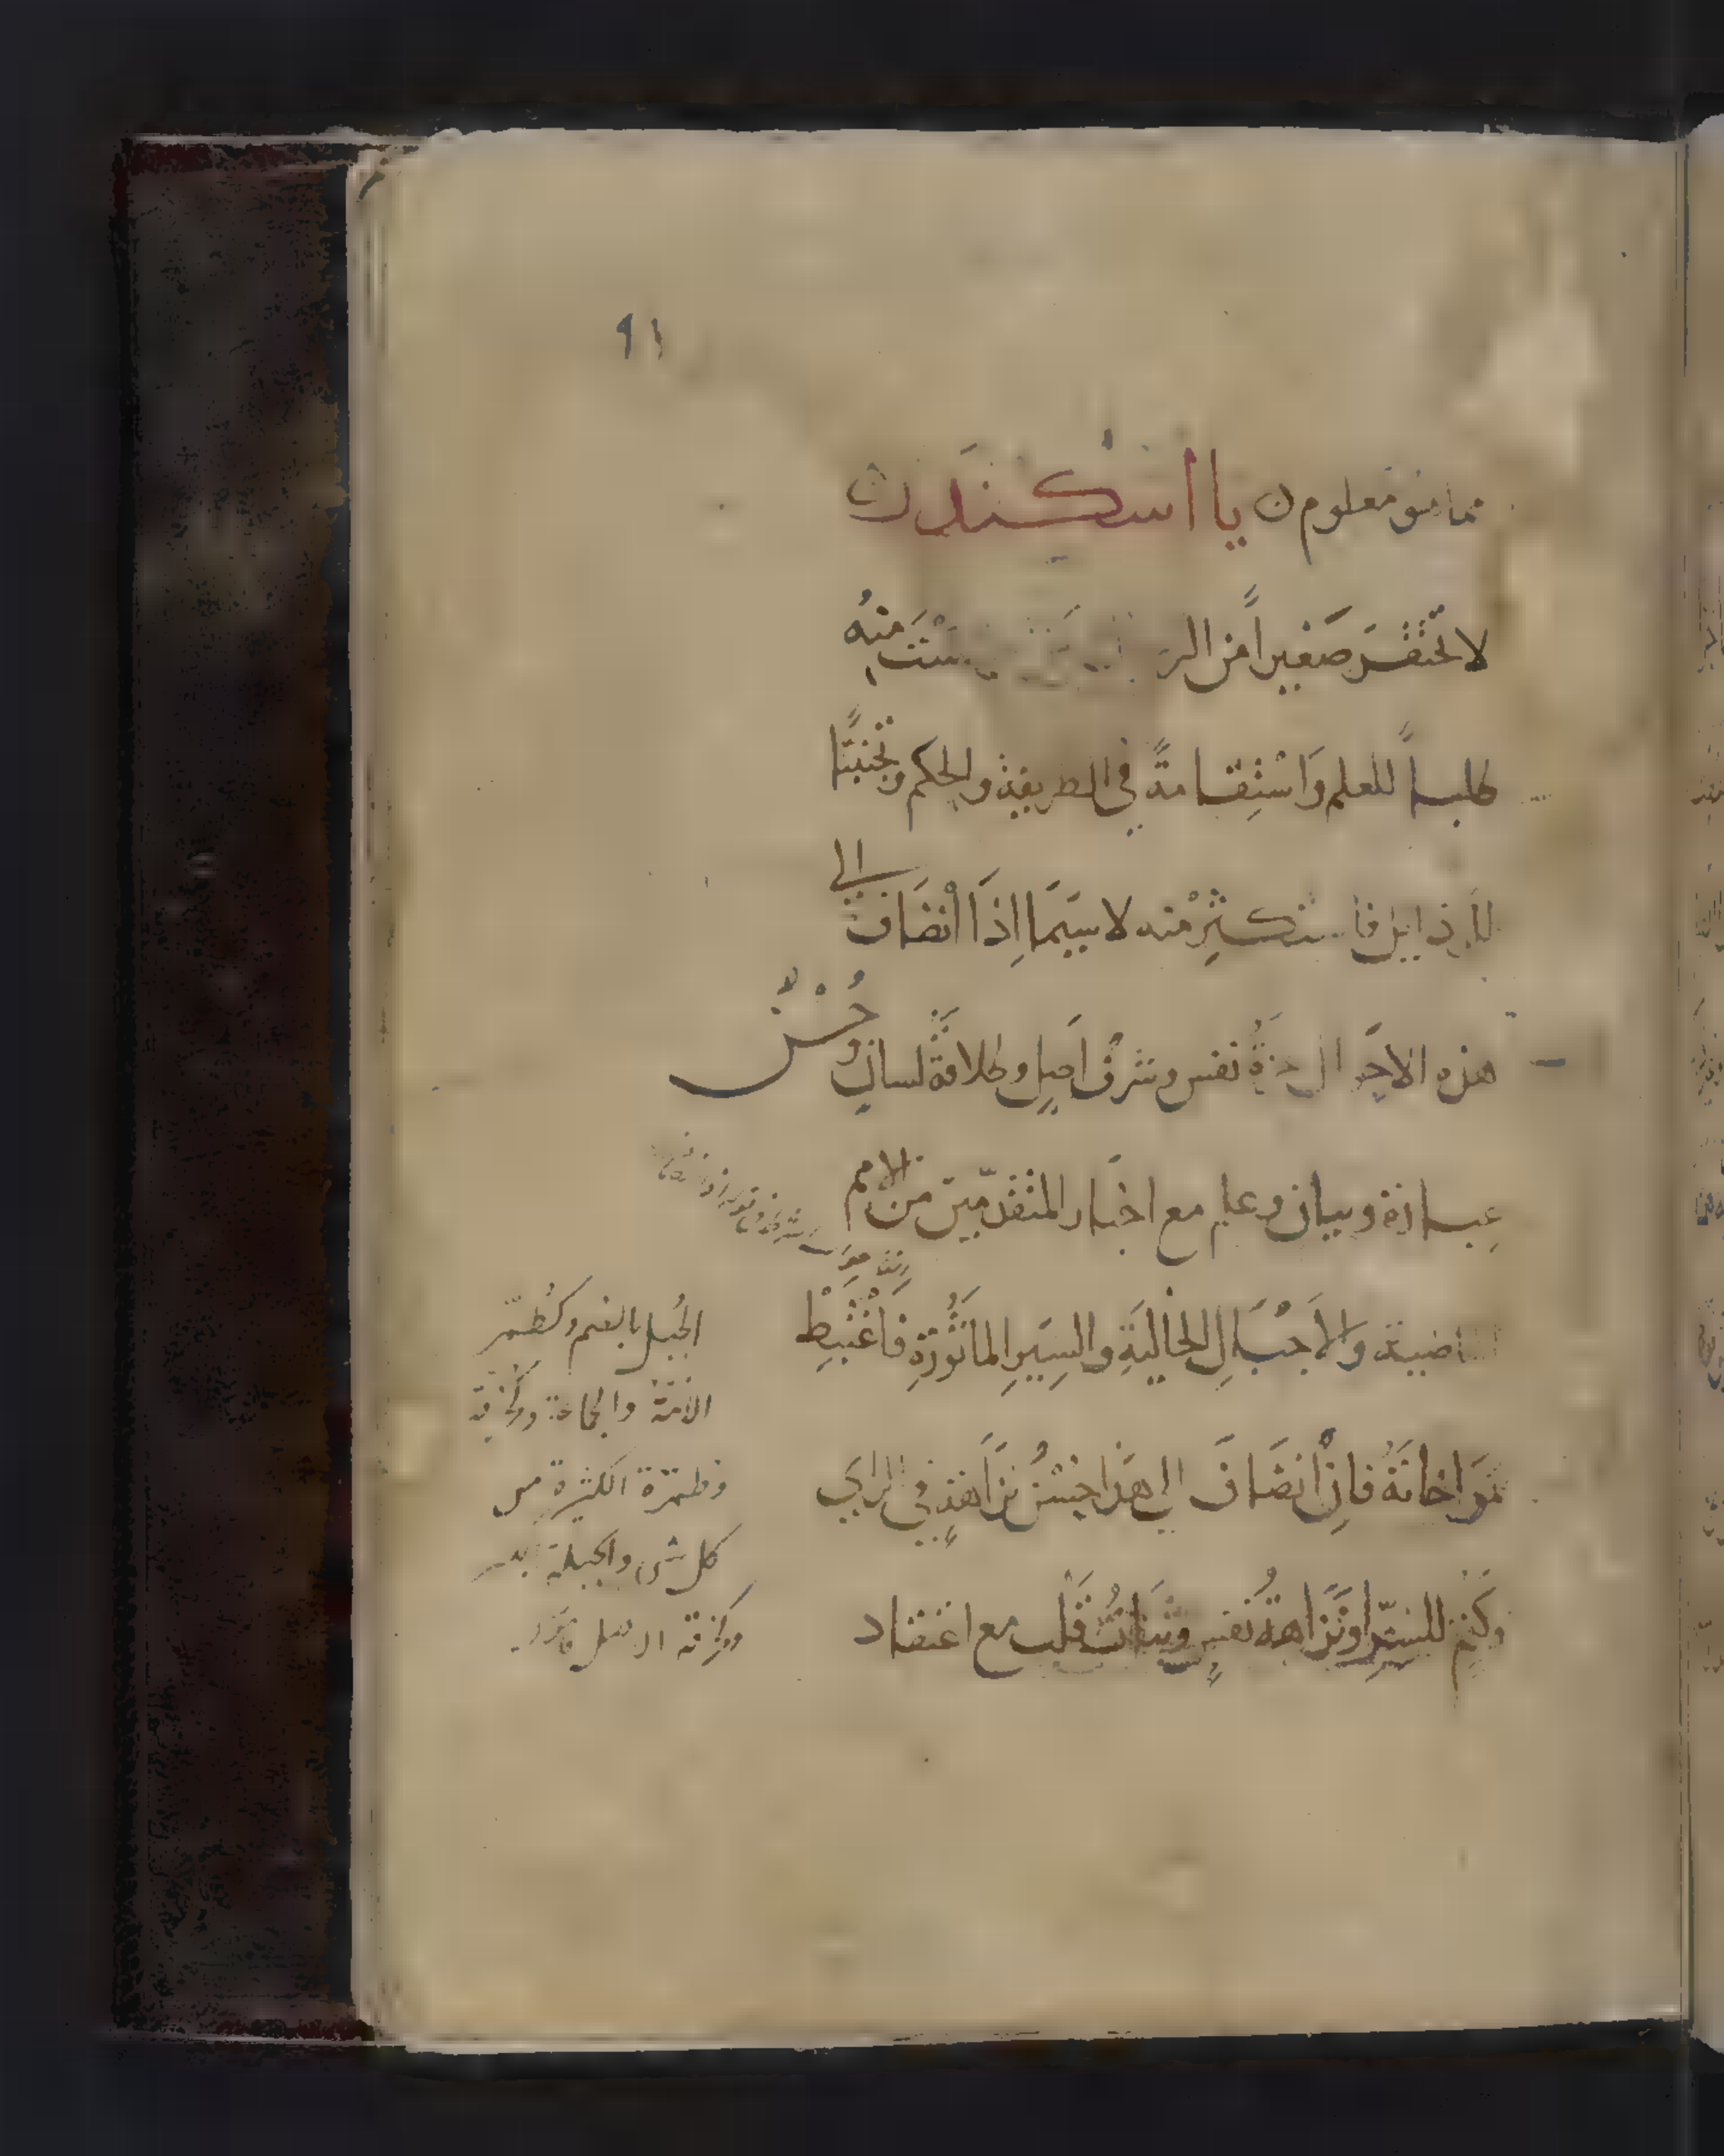 ٩١
مما هو معلوم ن يا اسكندر ن
لا تحتقر صغيراً من منه
طلباً للعلم وَاسْتِقامةً في الطريقة والحكم وتجنبًا
للرذايل فاستكثِرْ منه لا سيَّما اِذَا انْضَافَ الى
هذه الاحوال نفس وشرفُ اصلٍ وطلاقةُ لسانٍ وحُسْنُ
عِبارة وبيان وعلم مع اخبار المتقدّمين من الامم
الماضية والاَجْبَالِ الخاليَةِ والسِيَرِ المأثُورَةِ فاَغْتَبِطْ
بمَواخاتهُ فاِنْ انضَافَ الى هَذا حُسْنُ نزَاهةٍ في الراي
وكَتْمٍ للسِّر ونَزاهةُ نفسٍ وثباتُ قَلب مع اعتقاد
الجُبل بالضم وكطمرّ
الامّة والجماعة
وطمرّة الكثيرة من
كل شيء والجبلة
الاصل